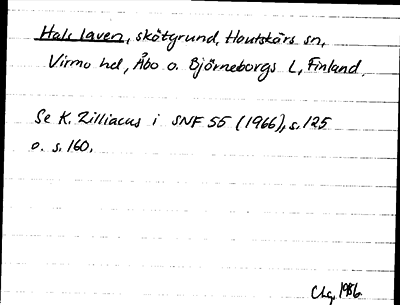 Hals laven, skötgrund, Houtskärs sn,
Virmo hd, Åbo o. Björneborgs L, Finland.
Se K. Zilliacus i SNF 55 (1966), s. 125
o. s. 160.
1986